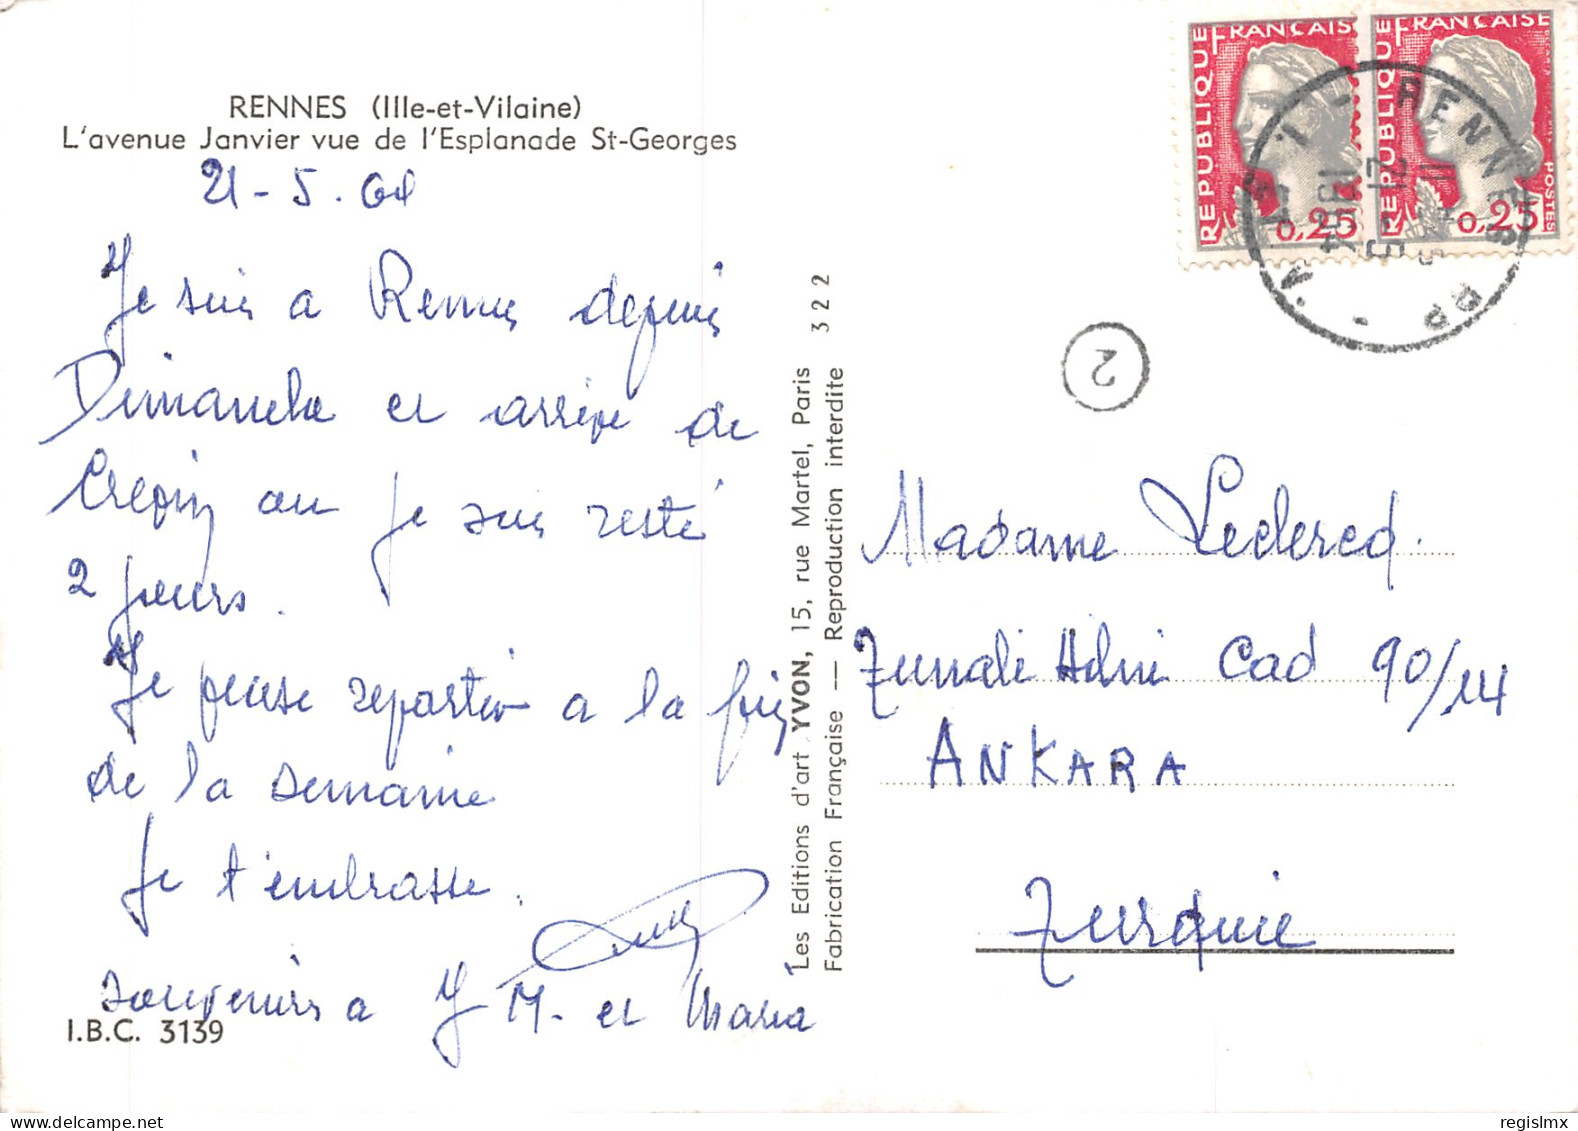 RENNES (Ille-et-Vilaine)
L'avenue Janvier vue de l'Esplanade St-Georges
21-5.64
Je suis a Rennes depuis
Dimanche et arrive de
Crepin ou je suis resté
2 jours.
Je pense repartir a la fin
de la semaine
Je t'embrasse.
souvenirs a J M. et Maria
I.B.C. 3139
Les Editions d'art YVON, 15, rue Martel, Paris
Fabrication Française — Reproduction interdite 322
RÉPUBLIQUE FRANÇAISE
POSTES
0,25
RÉPUBLIQUE FRANÇAISE
POSTES
0,25
RENNES RP
2
Madame Leclercq.
Tunali Hilmi Cad 90/14
ANKARA
Turquie
regislmx